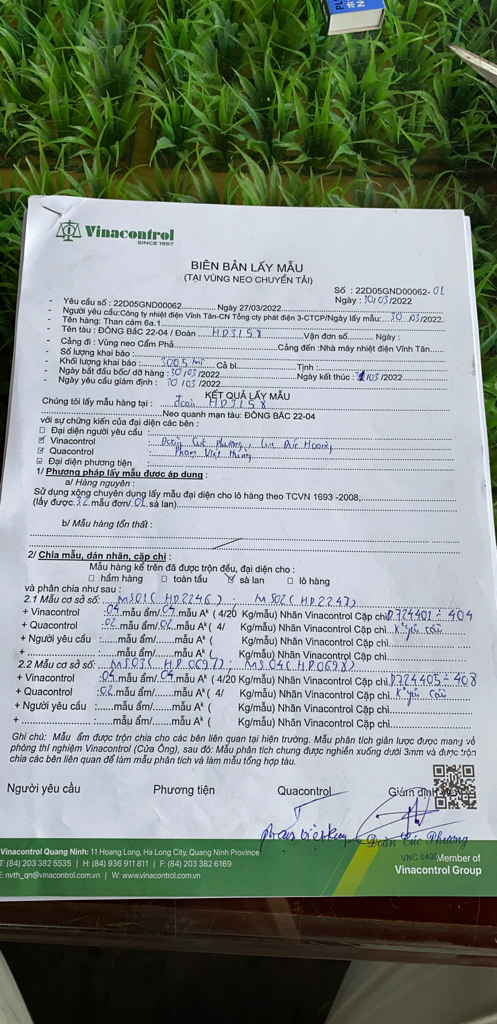 Vinacontrol
SINCE 1957
BIÊN BẢN LẤY MẪU
(TẠI VÙNG NEO CHUYỂN TẢI)
Số : 22D05GND00062- 01
Ngày : 30/03/2022
- Yêu cầu số : 22D05GND00062 Ngày 27/03/2022
- Người yêu cầu:Công ty nhiệt điện Vĩnh Tân-CN Tổng cty phát điện 3-CTCP/Ngày lấy mẫu: 30/03/2022.
- Tên hàng: Than cám 6a.1
- Tên tàu : ĐÔNG BẮC 22-04 / Đoàn HD3158 Vận đơn số. Ngày :
- Cảng đi : Vùng neo Cẩm Phả Cảng đến :Nhà máy nhiệt điện Vĩnh Tân
- Số lượng khai báo :
- Khối lượng khai báo : Cả bì Tịnh :
- Ngày bắt đầu bốc/ dỡ hàng : 30/03/2022 Ngày kết thúc : /03/2022
- Ngày yêu cầu giám định : 30/03/2022
KẾT QUẢ LẤY MẪU
Chúng tôi lấy mẫu hàng tại : Đoàn HD3158
Neo quanh mạn tàu: ĐÔNG BẮC 22-04
với sự chứng kiến của đại diện các bên :
Đại diện người yêu cầu :
Vinacontrol : Đoàn Cúc Phương, Lưu Đức Hoàng
Quacontrol : Phạm Việt Hùng
Đại diện phương tiện :
1/ Phương pháp lấy mẫu được áp dụng :
a/ Hàng nguyên :
Sử dụng xộng chuyên dụng lấy mẫu đại diện cho lô hàng theo TCVN 1693 -2008,
(lấy được 32 mẫu đơn/ 01 sà lan)
b/ Mẫu hàng tổn thất :
2/ Chia mẫu, dán nhãn, cặp chì :
Mẫu hàng kể trên đã được trộn đều, đại diện cho :
hầm hàng toàn tầu sà lan lô hàng
và phân chia như sau :
2.1 Mẫu cơ sở số: MS01 (HD2246) ; MS02 (HD2247)
+ Vinacontrol : 04 mẫu ẩm/ 04 mẫu Aᵏ ( 4/20 Kg/mẫu) Nhãn Vinacontrol Cặp chì D724401 ÷ 404
+ Quacontrol : 02 mẫu ẩm/ 02 mẫu Aᵏ ( 4/ Kg/mẫu) Nhãn Vinacontrol Cặp chì K° yêu cầu
+ Người yêu cầu : mẫu ẩm/ mẫu Aᵏ ( Kg/mẫu) Nhãn Vinacontrol Cặp chì
+ : mẫu ẩm/ mẫu Aᵏ ( Kg/mẫu) Nhãn Vinacontrol Cặp chì
2.2 Mẫu cơ sở số: MS03 (HD0697) ; MS04 (HD0698)
+ Vinacontrol : 04 mẫu ẩm/ 04 mẫu Aᵏ ( 4/20 Kg/mẫu) Nhãn Vinacontrol Cặp chì D724405 ÷ 408
+ Quacontrol : 02 mẫu ẩm/ mẫu Aᵏ ( 4/ Kg/mẫu) Nhãn Vinacontrol Cặp chì K° yêu cầu
+ Người yêu cầu : mẫu ẩm/ mẫu Aᵏ ( Kg/mẫu) Nhãn Vinacontrol Cặp chì
+ : mẫu ẩm/ mẫu Aᵏ ( Kg/mẫu) Nhãn Vinacontrol Cặp chì
Ghi chú: Mẫu ẩm được trộn chia cho các bên liên quan tại hiện trường. Mẫu phân tích giản lược được mang về
phòng thí nghiệm Vinacontrol (Cửa Ông), sau đó: Mẫu phân tích chung được nghiền xuống dưới 3mm và được trộn
chia các bên liên để làm mẫu phân tích và làm mẫu tổng hợp tàu.
Người yêu cầu Phương tiện Quacontrol Giám định
Đoàn Cúc Phương
VNC 0405
Vinacontrol Quang Ninh: 11 Hoang Long, Ha Long City, Quang Ninh Province
T: (84) 203 382 5535 | H: (84) 936 911 811 | F: (84) 203 382 6169
E: nvth_qn@vinacontrol.com.vn | W: www.vinacontrol.com.vn
Member of
Vinacontrol Group